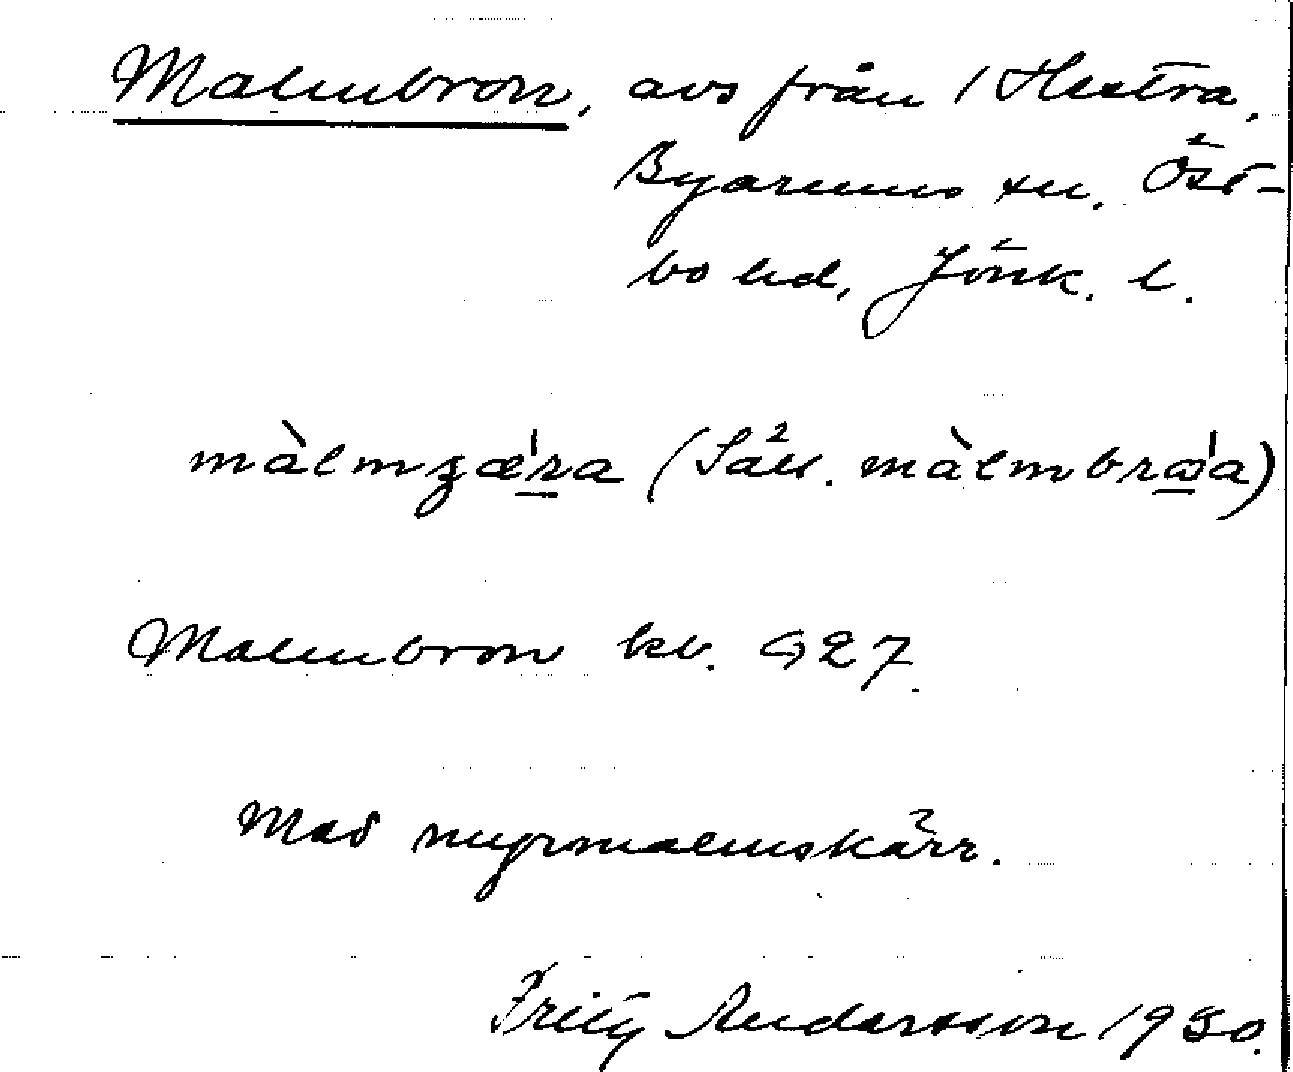 Malmbron, avs från 1 Hestra,
Byarums sn. Öst-
bo hd, Jönk. l.
màlmʒæ'ra (Säll. màlmbrɷ'a)
Malmbron kv. G27.
Mad myrmalmskärr.
Fritz Andersson 1930.